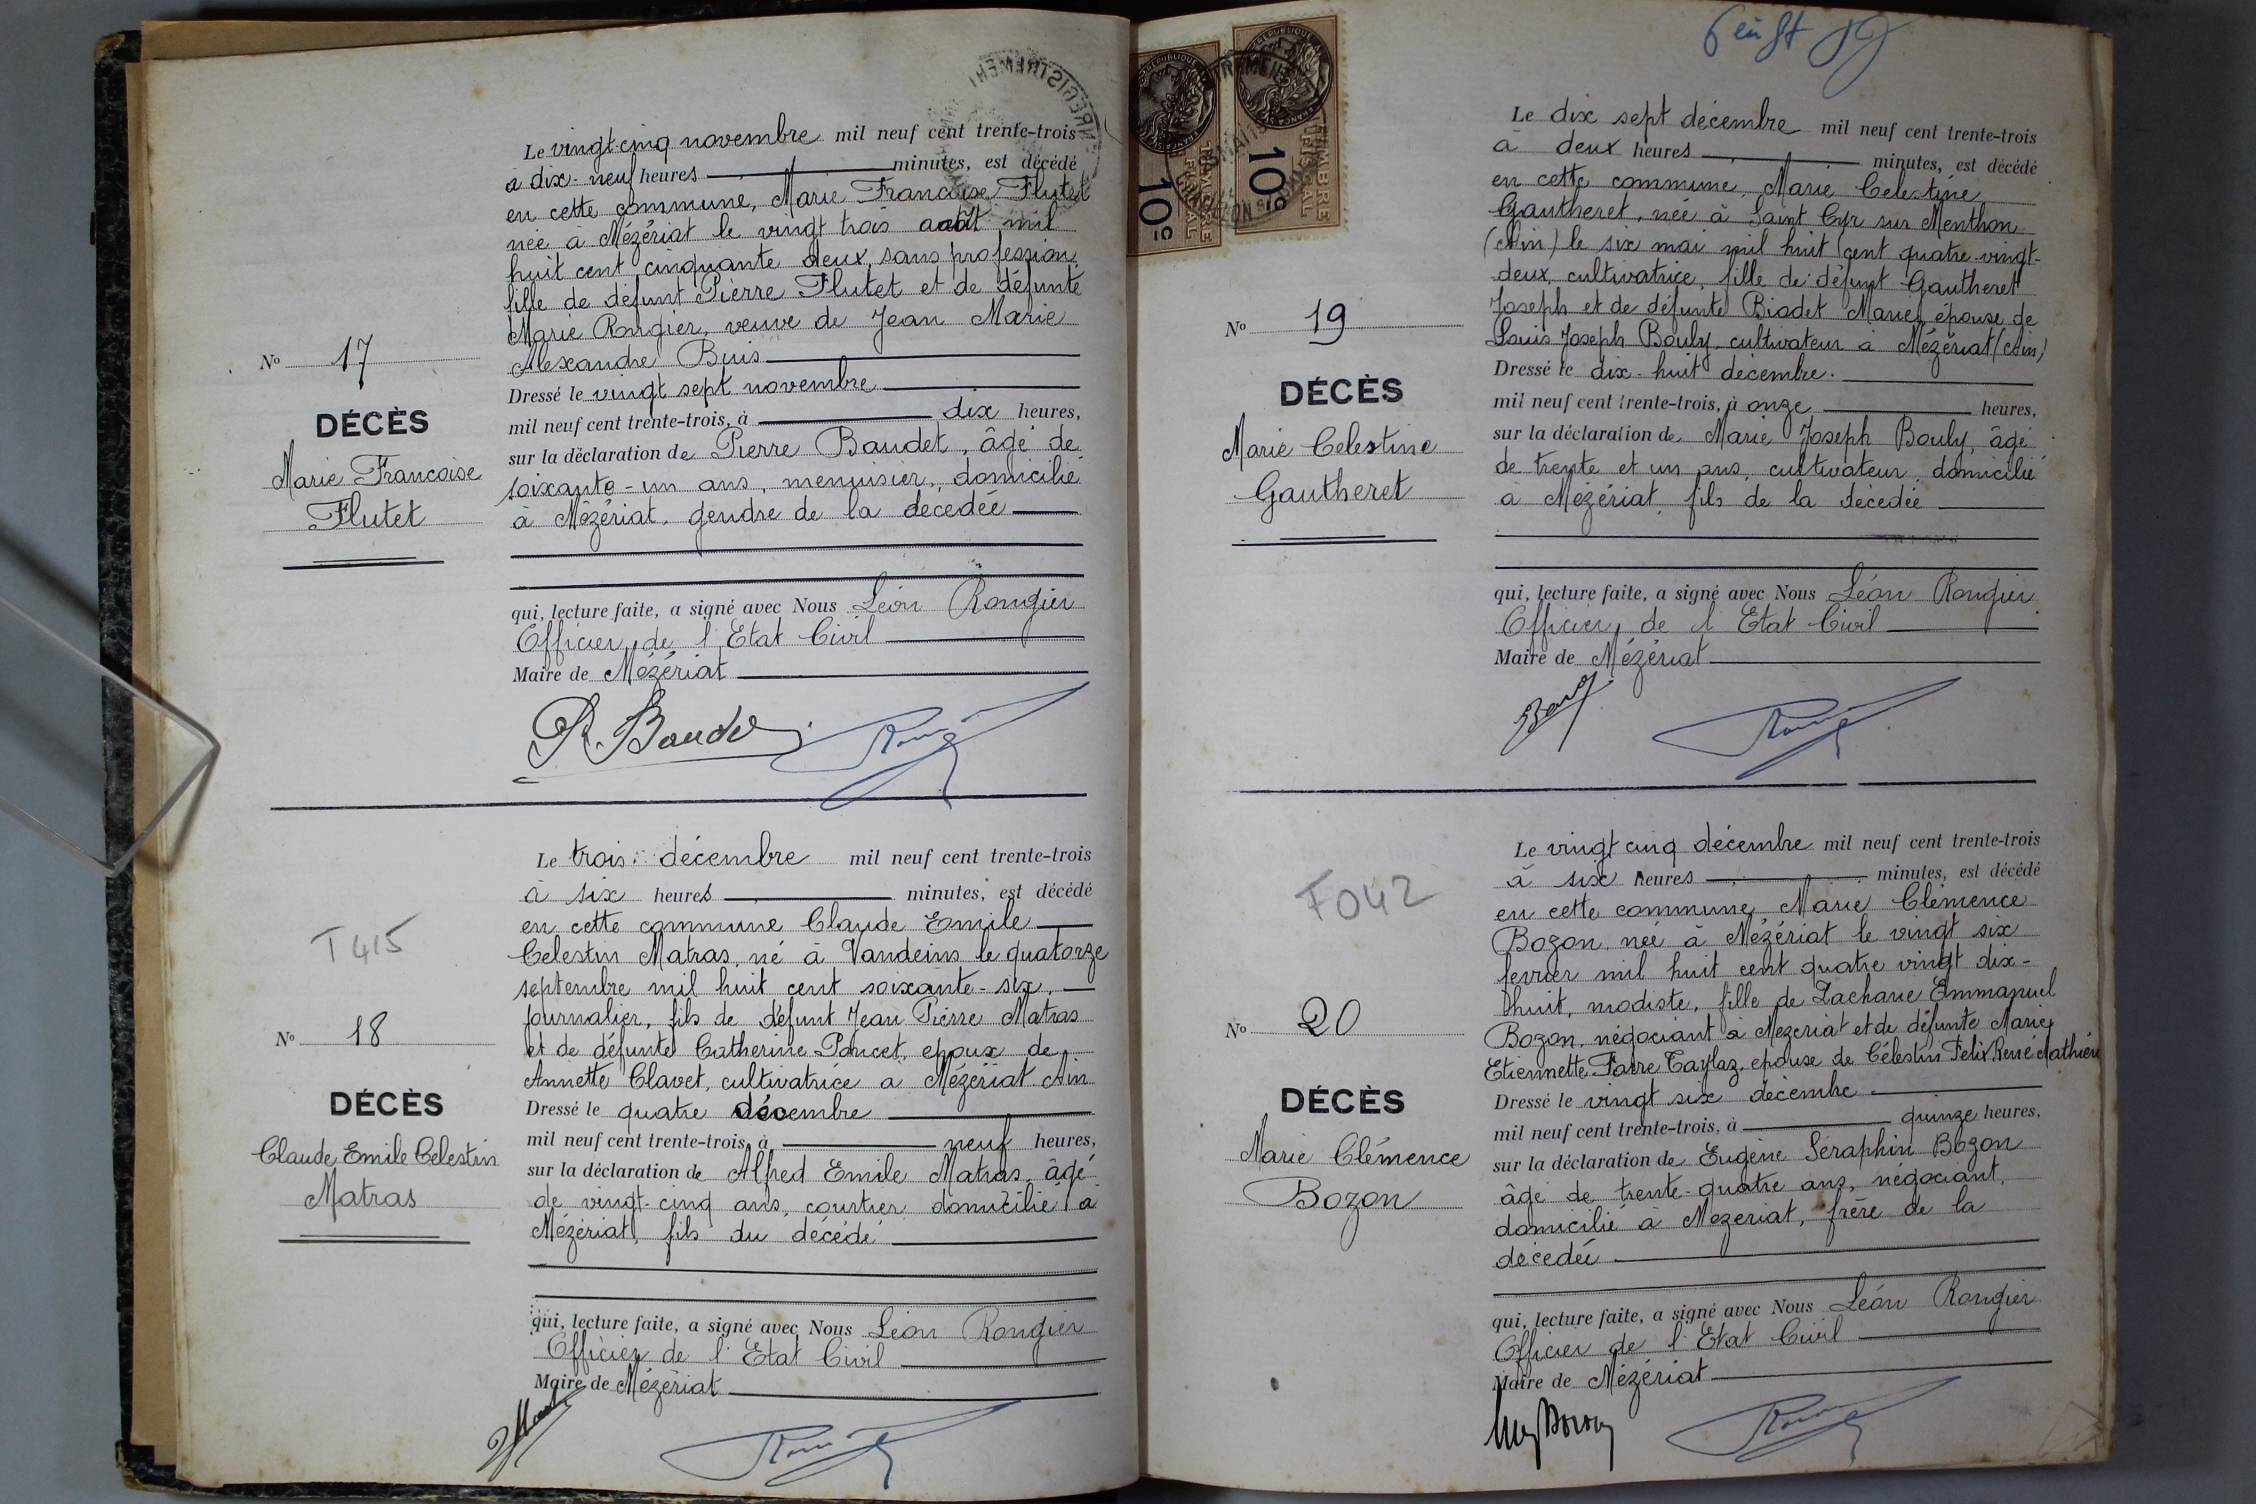 Le vingt-cinq novembre mil neuf cent trente-trois
à dix-neuf heures minutes, est décédé
en cette commune, Marie Francoise Flutet
née à Mézériat le vingt trois août mil
huit cent cinquante deux, sans profession,
fille de défunt Pierre Flutet et de défunte
Marie Rongier, veuve de Jean Marie
Alexandre Buis
Dressé le vingt sept novembre
mil neuf cent trente-trois, à dix heures,
sur la déclaration de Pierre Baudet, âgé de
soixante-un ans, menuisier, domicilié
à Mézériat, gendre de la décédée
No 17
DÉCÈS
Marie Francoise
Flutet
qui, lecture faite, a signé avec Nous Léon Rongier
Officier de l'Etat Civil
Maire de Mézériat
Le trois décembre mil neuf cent trente-trois
à six heures minutes, est décédé
en cette commune Claude Emile
Celestin Matras, né à Vandeins le quatorze
septembre mil huit cent soixante-six,
journalier, fils de défunt Jean Pierre Matras
et de défunte Catherine Poncet, epoux de
Annette Clavet, cultivatrice à Mézériat Ain
Dressé le quatre décembre
mil neuf cent trente-trois, à neuf heures,
sur la déclaration de Alfred Emile Matras, âgé
de vingt-cinq ans, courtier domicilié à
Mézériat, fils du décédé
T415
No 18
DÉCÈS
Claude Emile Celestin
Matras
qui, lecture faite, a signé avec Nous Léon Rongier
Officier de l'Etat Civil
Maire de Mézériat
TIMBRE FISCAL
10c
TIMBRE FISCAL
10c
Le dix sept décembre mil neuf cent trente-trois
à deux heures minutes, est décédé
en cette commune, Marie Celestine
Gautheret, née à Saint Cyr sur Menthon
(Ain) le six mai mil huit cent quatre-vingt-
deux, cultivatrice, fille de défunt Gautheret
Joseph et de défunte Biodet Marie, épouse de
Louis Joseph Bouly, cultivateur à Mézériat (Ain)
Dressé le dix-huit décembre.
mil neuf cent trente-trois, à onze heures,
sur la déclaration de Marie Joseph Bouly, âgé
de trente et un ans, cultivateur domicilié
à Mézériat, fils de la décédée
No 19
DÉCÈS
Marie Celestine
Gautheret
qui, lecture faite, a signé avec Nous Léon Rongier
Officier de l'Etat Civil
Maire de Mézériat
Le vingt cinq décembre mil neuf cent trente-trois
à six heures minutes, est décédé
en cette commune, Marie Clémence
Bozon, née à Mézériat le vingt six
fevrier mil huit cent quatre vingt dix-
huit, modiste, fille de Zacharie Emmanuel
Bozon, négociant à Mezeriat et de défunte Marie
Etiennette Favre Taylaz, epouse de Célestin Felix René Mathieu
Dressé le vingt six décembre
mil neuf cent trente-trois, à quinze heures,
sur la déclaration de Eugène Seraphin Bozon
âgé de trente-quatre ans, négociant,
domicilié à Mezeriat, frère de la
décedée
F042
No 20
DÉCÈS
Marie Clémence
Bozon
qui, lecture faite, a signé avec Nous Léon Rongier
Officier de l'Etat Civil
Maire de Mézériat